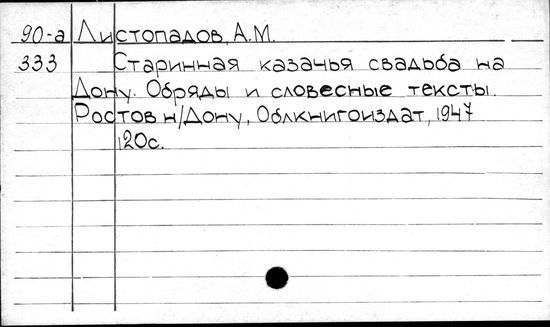 90-а Листопадов, А.М.
333 Старинная казачья свадьба на
Дону. Обряды и словесные тексты.
Ростов н/Дону, Облкнигоиздат, 1947
120с.